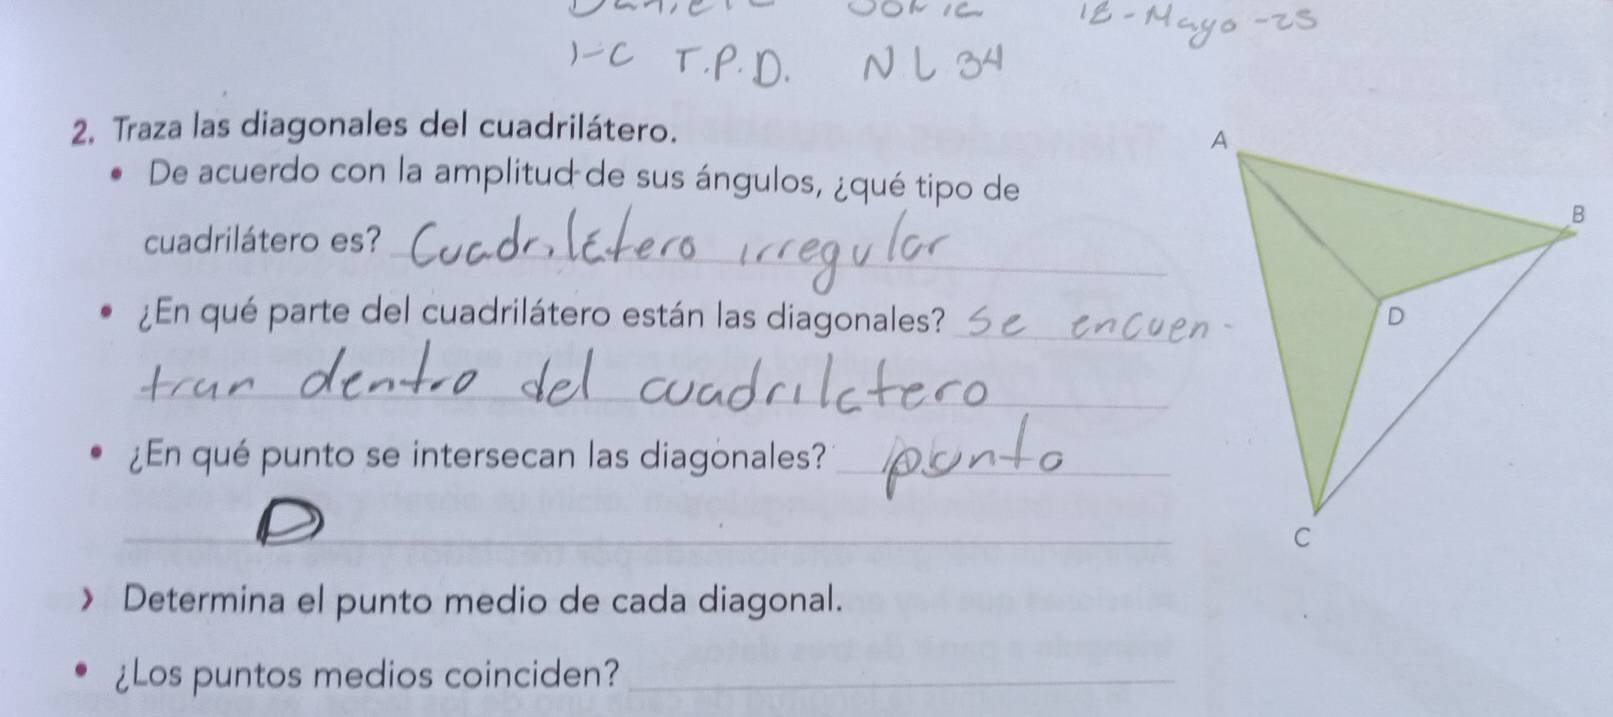 18-Mayo-25
1-C T.P.D. NL 34
2. Traza las diagonales del cuadrilátero.
• De acuerdo con la amplitud de sus ángulos, ¿qué tipo de
cuadrilátero es? Cuadrilátero irregular
• ¿En qué parte del cuadrilátero están las diagonales? Se encuen-
tran dentro del cuadrilatero
• ¿En qué punto se intersecan las diagonales? punto
D
› Determina el punto medio de cada diagonal.
• ¿Los puntos medios coinciden?
A
B
D
C